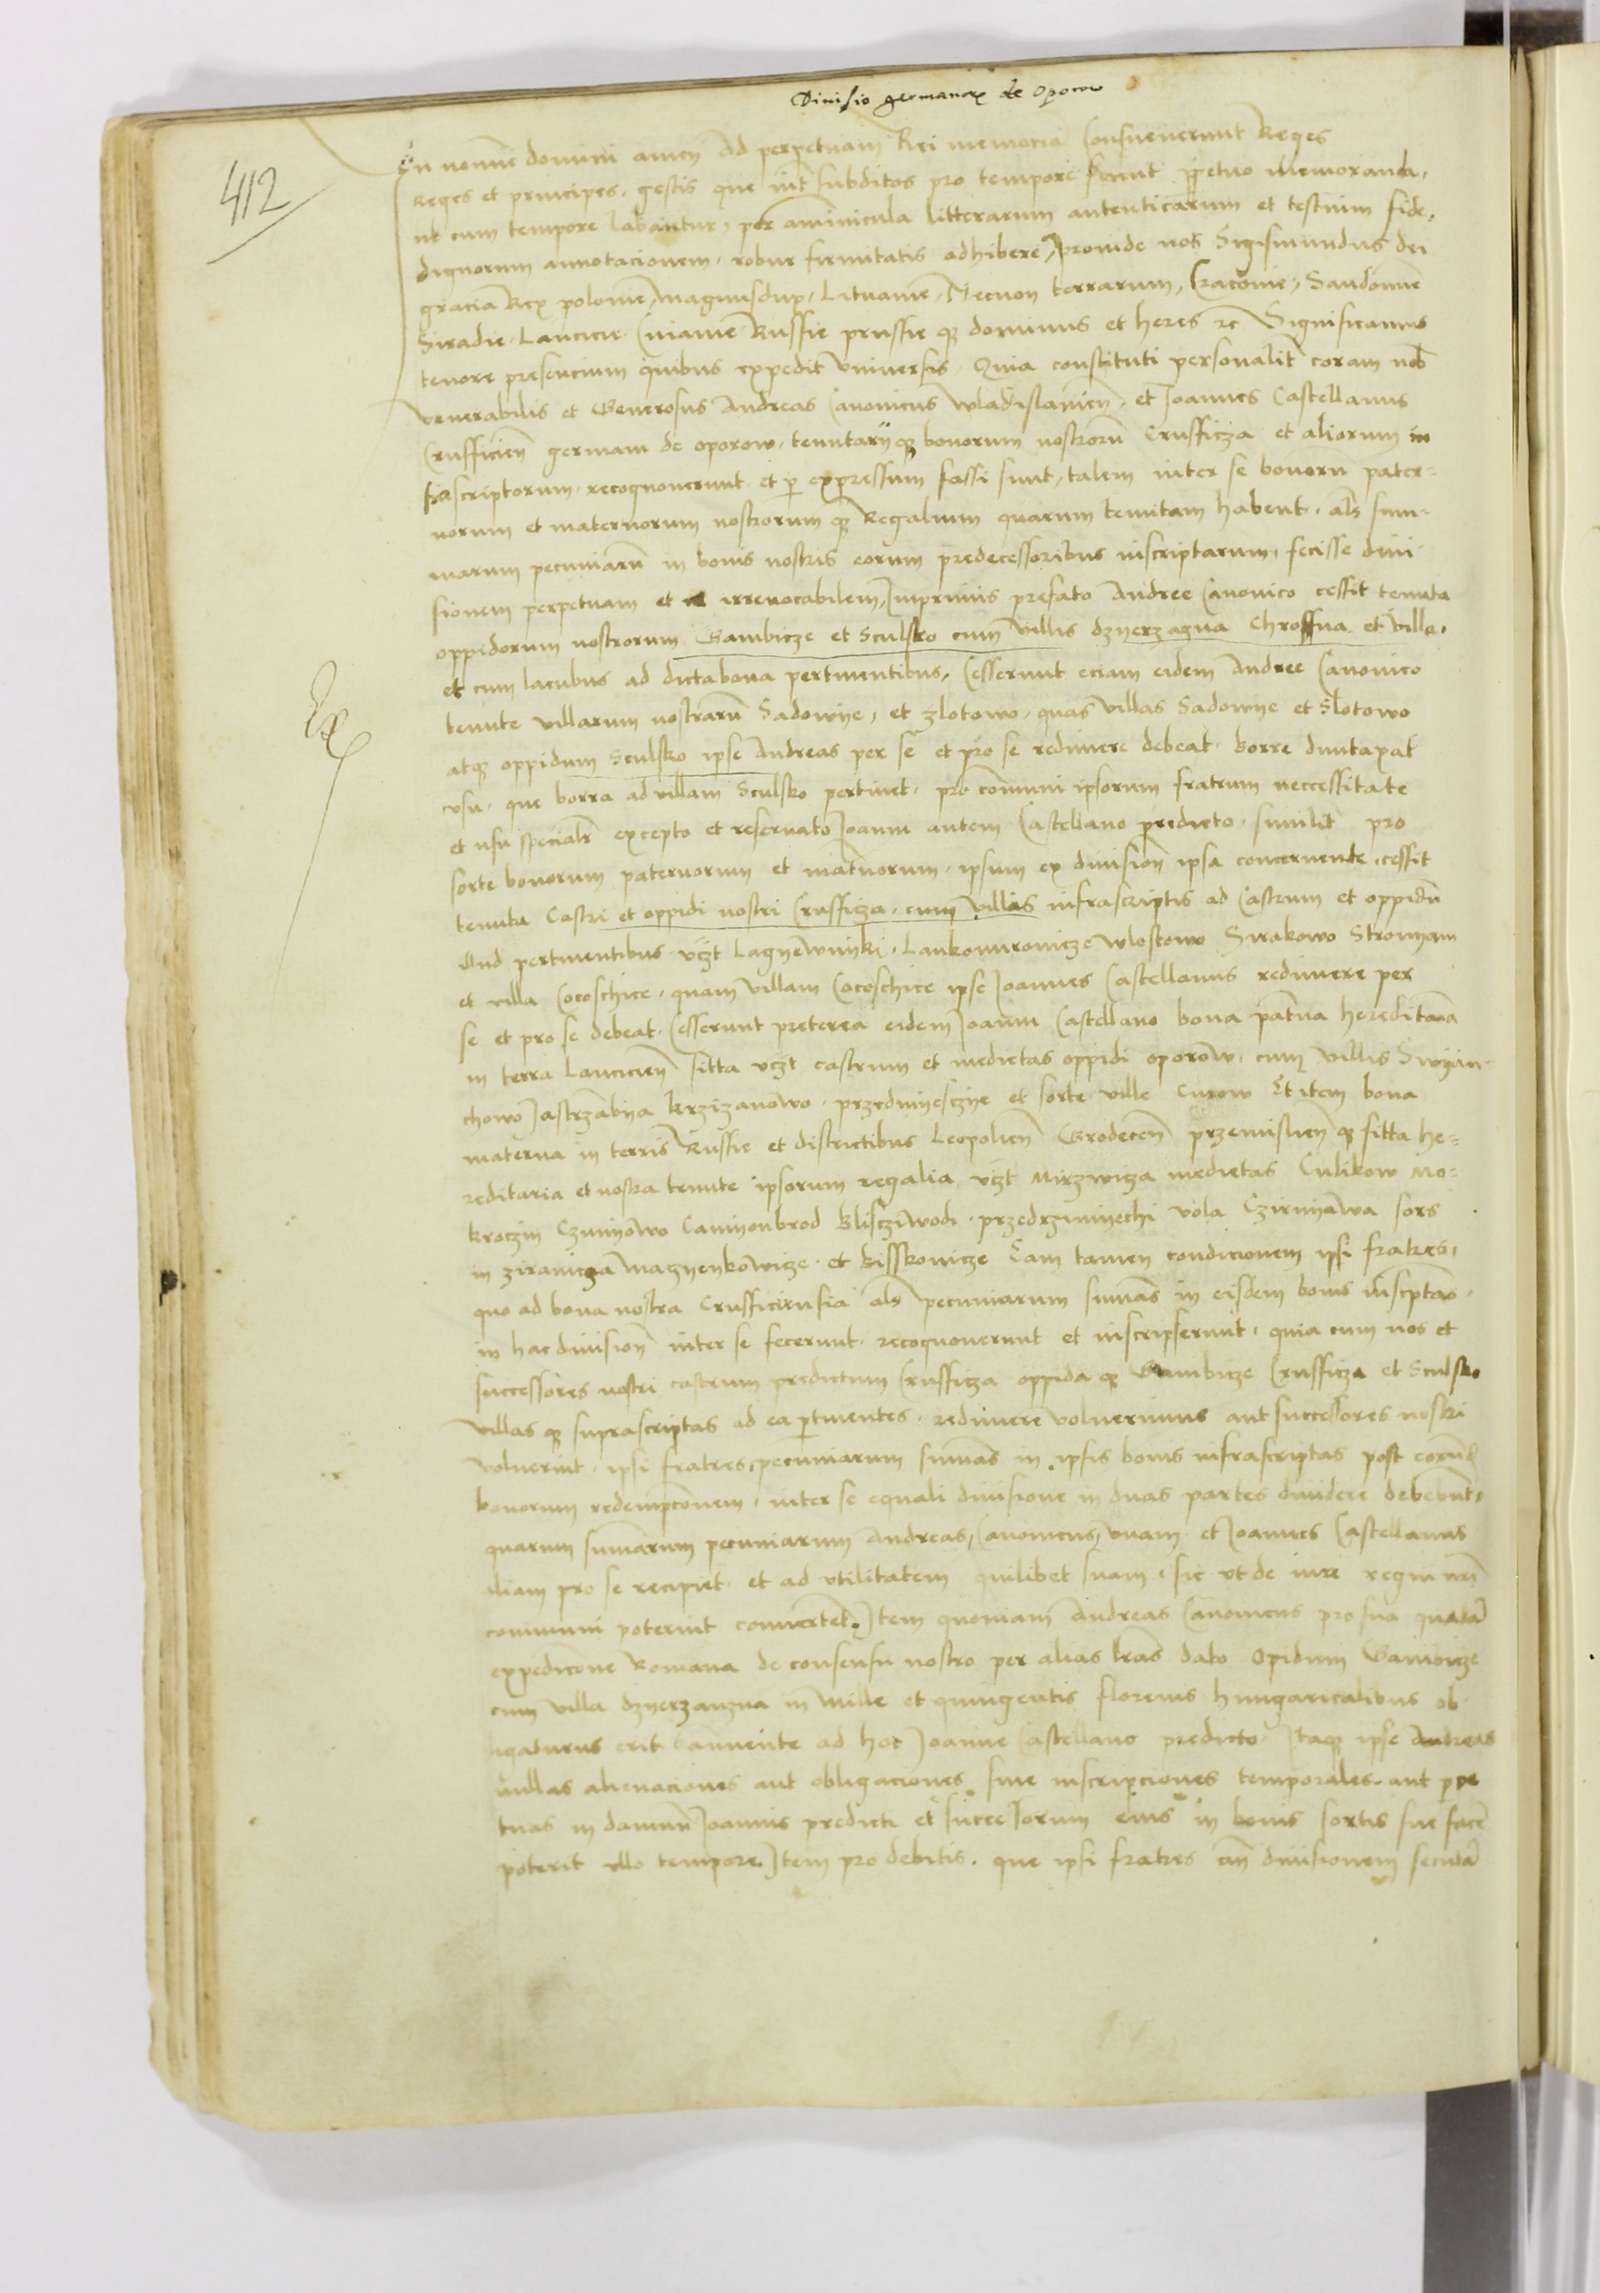 Diuisio germanor de Oporow
412
In nomine domini amen Ad perpetuam Rei memoria Consueuerunt Reges
Reges et principes, gestis que int subditos pro tempore fiunt ppetuo memoranda,
ne cum tempore labantur, per aminicula litterarum autenticarum et testium fide,
dignorum annotacionem, robur firmitatis adhibere, proinde nos Sigismundus dei
gracia Rex polonie, magnusdux, Lituanie, Necnon terrarum, Cracouie, Sandomie
Siradie Lancicie Cuiauie Russie prussie qz dominus et heres rc Significamus
tenore presencium quibus expedit vniuersis, Quia constituti personalit coram nob
venerabilis et Generosus Andreas Canonicus wladislauien, et Joannes Castellanus
Crufficien germani de oporow, tenutarij qz bonorum nostroru Crufficza et aliorum in
fra scriptorum, recognouerunt et p expressum fassi sunt, talem inter se bonoru pater-
norum et maternorum nostrorum qz Regalium quarum tenutam habent, als sum-
marum pecuniaru in bonis nostris eorum predecessoribus inscriptarum, fecisse diui
sionem perpetuam et irreuocabilem, Inprimis prefato Andree Canonico cessit tenuta
oppidorum nostrorum Gambicze et Sculsko cum villis dznerzazna Chrossna et villa,
et cum lacubus ad dictabona pertinentibus, Cesserunt eciam eidem Andree Canonico
tenute villarum nostraru Sadowne, et zlotowo, quas villas Sadowne et Slotowo
atqz oppidum Sculsko ipse Andreas per se et pro se redimere debeat, borre duntaxat
vsu, que borra ad villam Sculsko pertinet, pro comuni ipsorum fratrum neccessitate
et usu specialr excepto et reseruato Joanni autem Castellano predicto, similit pro
sorte bonorum paternorum et maternorum, ipsum ex diuision ipsa concernente, cessit
tenuta Castri et oppidi nostri Crufficza, cum villas infrascriptis ad Castrum et oppidu
illud pertinentibus vczt Lagyewniki, Lankomirowicze wlostowo Sirakowo
et villa Cocoschice, quam villam Cocoschice ipse Joannes Castellanus redimere per
se et pro se debeat, Cesserunt preterea eidem Joanni Castellano bona patna hereditaria
in terra Lancicien sitta vczt castrum et medietas oppidi oporow, cum villis Swyan-
chowo Jastrzabya krzizanowo, et sorte ville Curow Et item bona
materna in terris Russie et districtibus Leopolien Grodecen przemislien qz sitta he-
reditaria et nostra tenute ipsorum regalia vczt Mirzwicza medietas Culikow Mo-
kroczin Czuniowo Camyonbrod wola sors
in et Eam tamen condicionem ipsi fratres,
quo ad bona nostra als pecuniarum sumas in eisdem bonis inscptas,
in hac diuision inter se fecerunt, recognouerunt et inscripserunt, quia cum nos et
successores nostri castrum predictum Crufficza oppida qz Gambicze Crufficza et Sculsko
villas qz suprascriptas ad ea ptinentes, redimere voluerimus aut successores nostri
voluerint, ipsi fratres, pecuniarum sumas in ipsis bonis infrascriptas post eorud
bonorum redemptionem, inter se equali diuisione in duas partes diuidere debebunt,
quarum sumarum pecuniarum Andreas, Canonicus, vnam et Joannes Castellanus
aliam pro se recipiet et ad vtilitatem quilibet suam, sic ut de iure regni nri
communi poterint conuertet. Item quoniam Andreas Canonicus pro sua quada
expedicone Romana de consensu nostro per alias lras dato Opidum Gambicze
cum villa dznerzanzna in mille et quingentis florenis hungaricalibus ob
ligaturus erit annuente ad hoc Joanne Castellano predicto, Itaqz ipse Andreas
nullas alienaciones aut obligaciones siue inscripciones temporales, aut ppe
tuas in damnu Joannis predicti et successorum eius in bonis sortis sue face
poterit vllo tempore, Item pro debitis, que ipsi fratres diuisionem